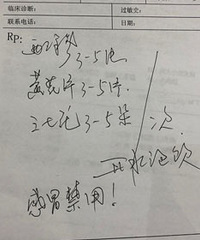 临床诊断: 过敏史:
联系电话: 日期:
Rp:
西洋参 3-5片
黄芪片 3-5片.
三七花 3-5朵 / 次.
开水泡饮
感冒禁用!